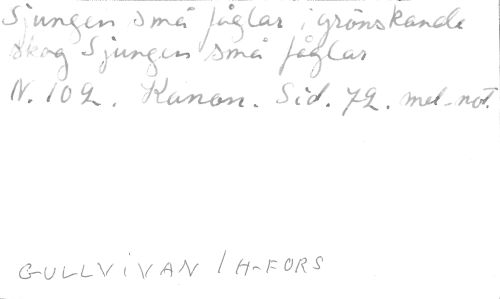 Sjungen små fåglar i grönskande
skog Sjungen små fåglar
N. 102. Kanon. Sid. 72. mel-not.
GULLVIVAN / H-FORS